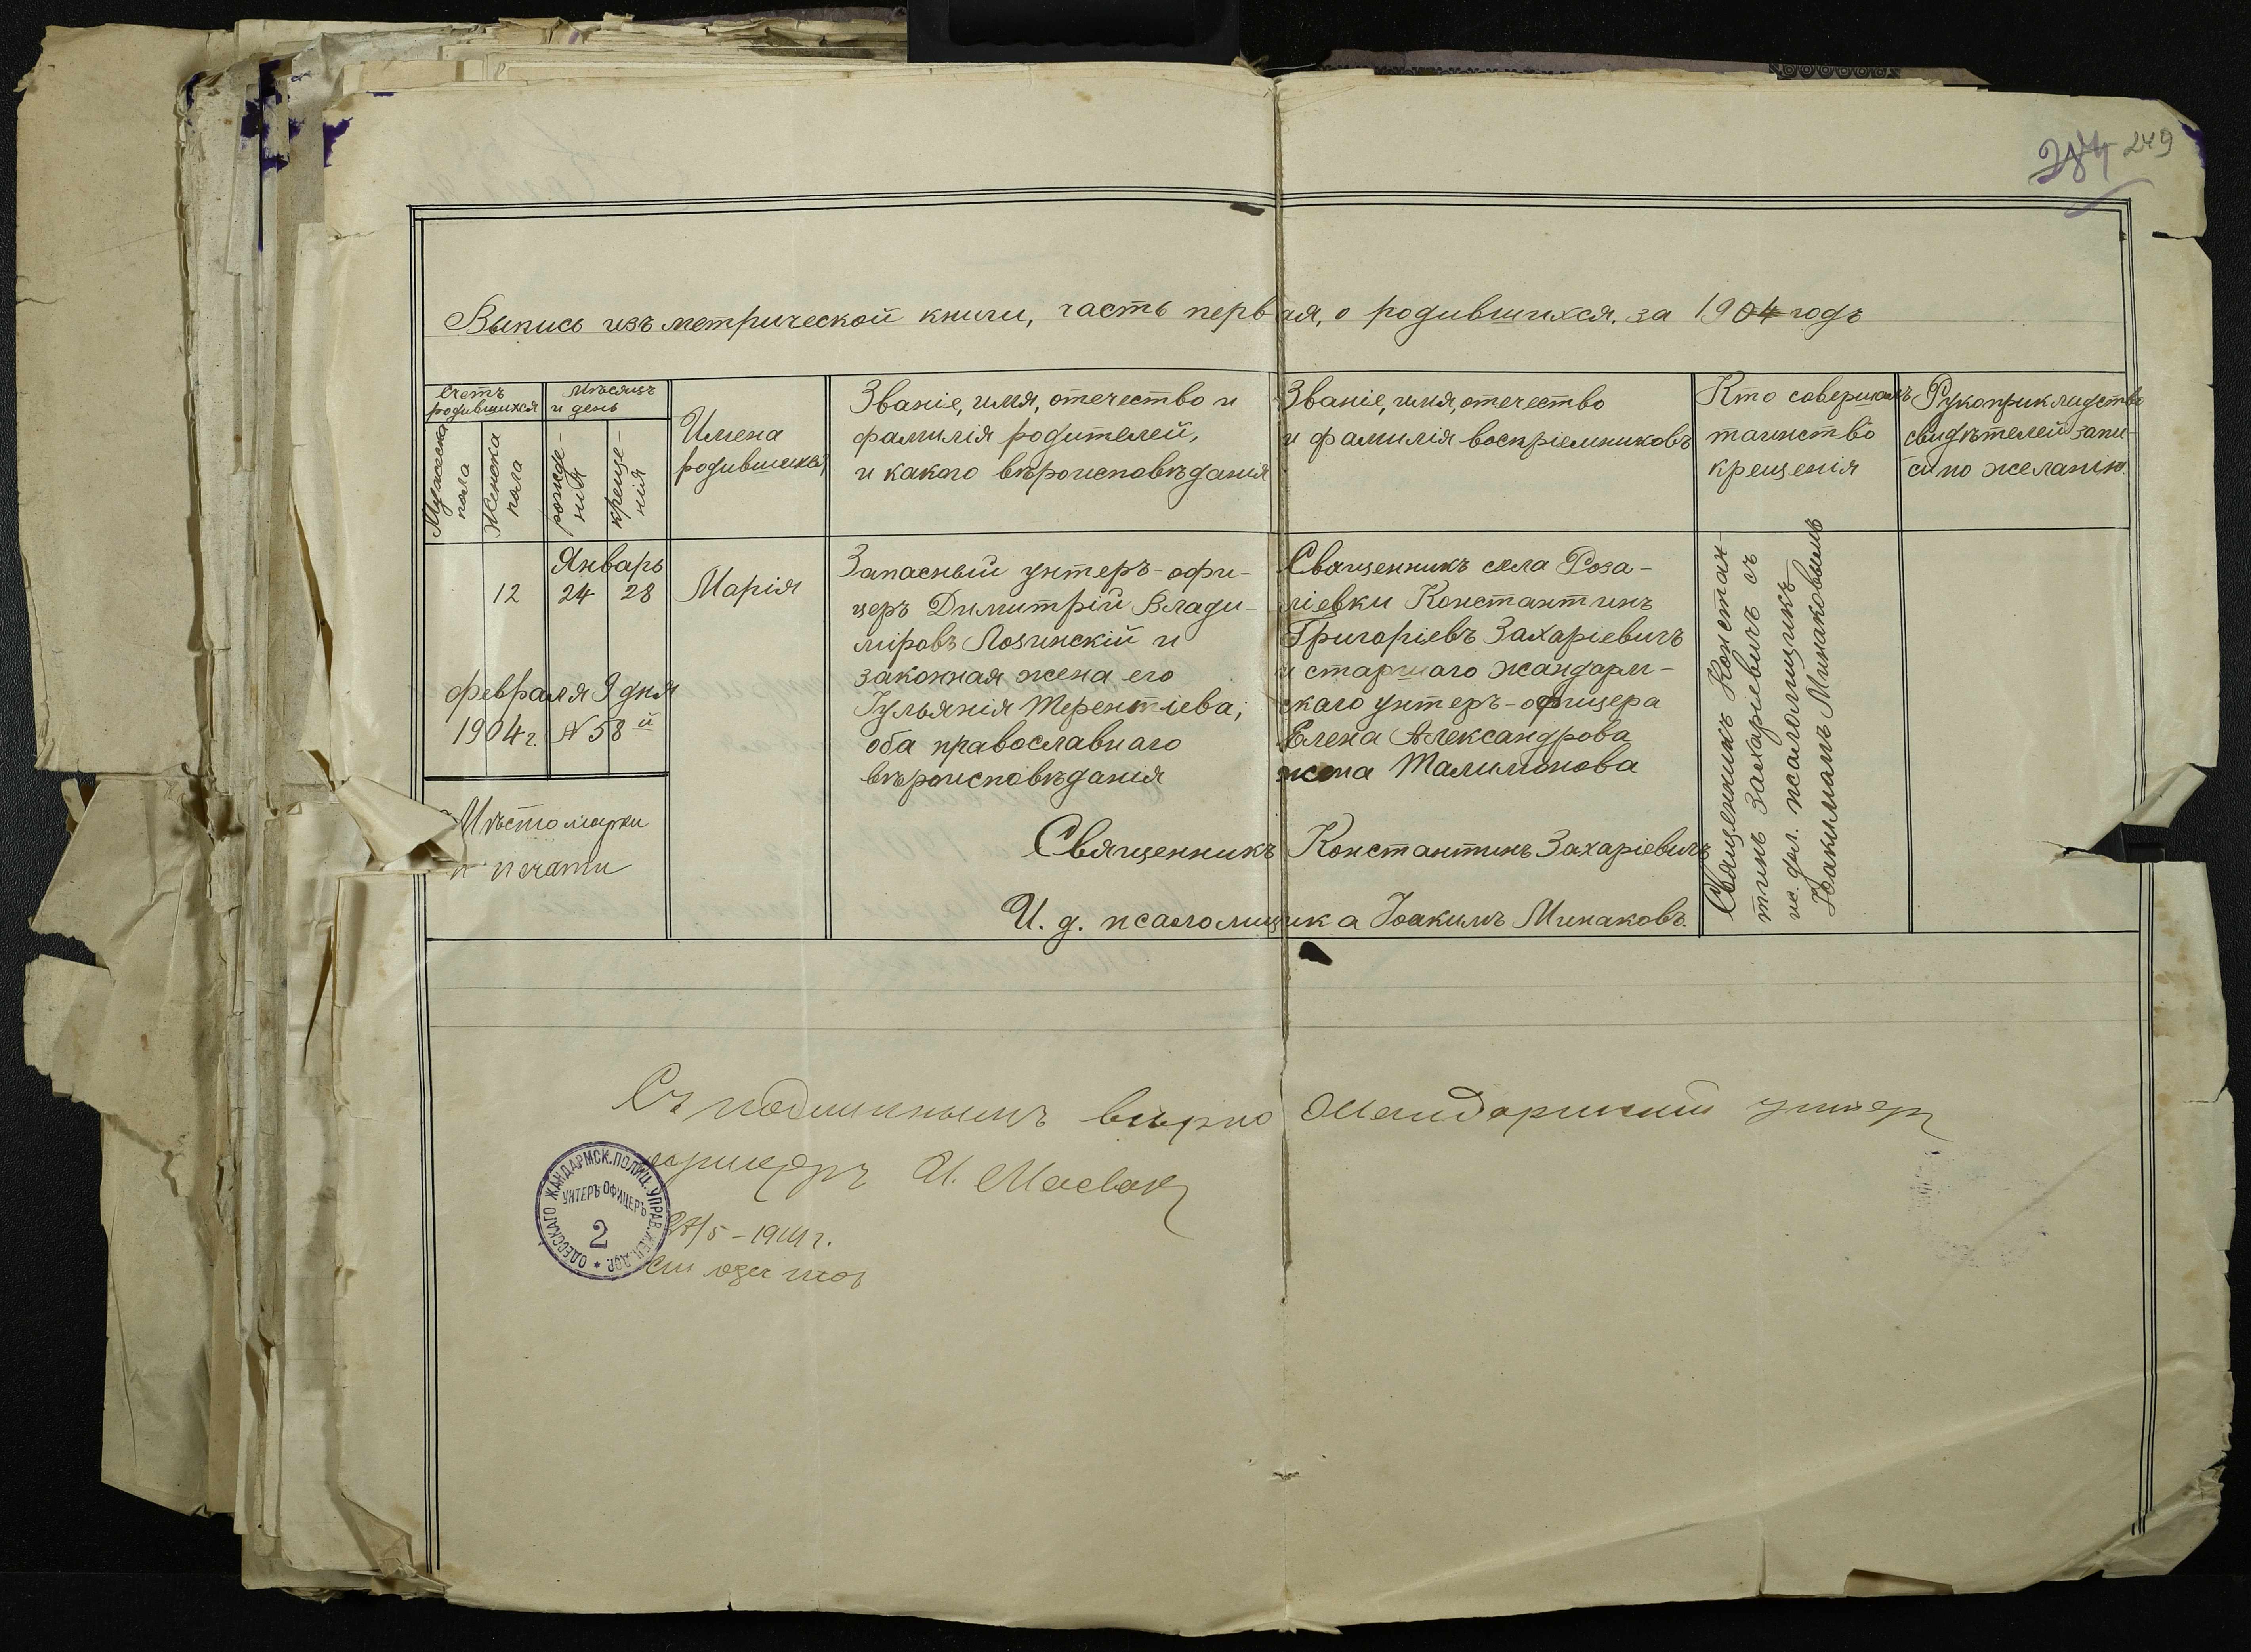 249
Выпись изъ метрической книги, часть первая, о родившихся, за 1904 годъ
Счетъ родившихся
Мужеска пола
Женска пола
Мѣсяцъ и день
рожде-
нія
креще-
нія
Имена
родившихся
Званіе, имя, отечество и
фамилія родителей,
и какого вѣроисповѣданія
Званіе, имя, отечество
и фамилія воспріемниковъ
Кто совершалъ
таинство
крещенія
Рукоприкладство
свидѣтелей запи-
си по желанію.
Январь
12 24 28
Марія
Запасный унтеръ-офи-
церъ Димитрій Влади-
міровъ Лозинскій и
законная жена его
Іульянія Терентіева;
оба православнаго
вѣроисповѣданія
Священникъ села Роза-
ліевки Константинъ
Григоріевъ Захаріевичъ
и старшаго жандарм-
скаго унтеръ-офицера
Елена Александрова
жена Талимонова
Священникъ Констан-
тинъ Захаріевичъ съ
ис. дол. псаломщикъ
Іоакимомъ Минаковымъ
февраля 9 дня
1904 г. № 58й
Мѣсто марки
и печати
Священникъ Константинъ Захаріевичъ
И. д. псаломщика Іоакимъ Минаковъ.
Съ подлиннымъ вѣрно Жандармскій унтер
офицеръ И.
ОДЕССКАГО ЖАНДАРМСК. ПОЛИЦ. УПРАВ. ЖЕЛ. ДОР.
УНТЕРЪ ОФИЦЕРЪ
2